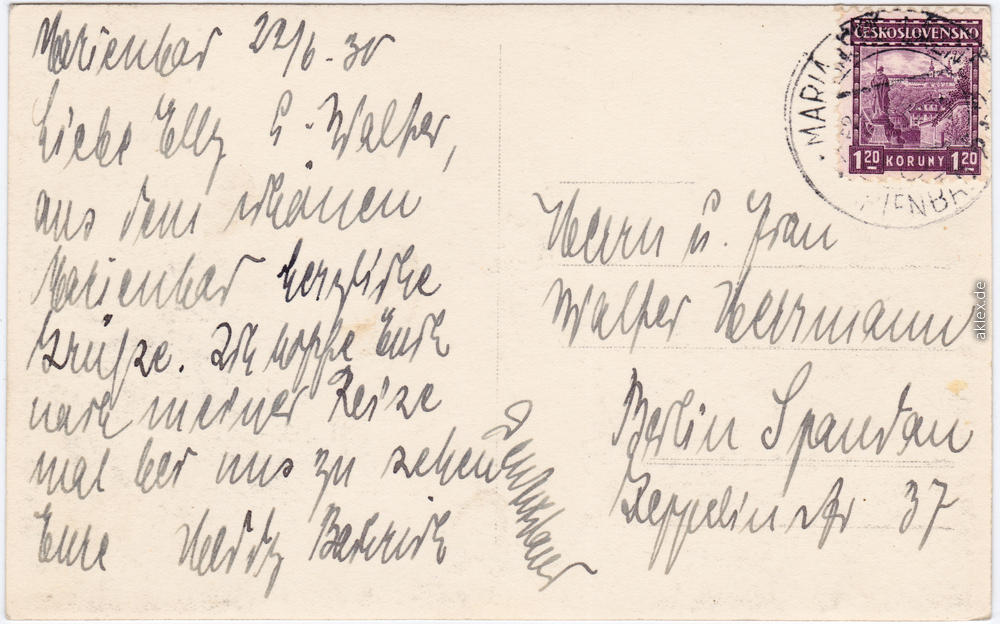 Marienbad 22/6.30
Liebe Elly u. Walter,
aus dem schönen
Marienbad herzliche
Grüsse. Ich hoffe Euch
nach meiner Reise
mal bei uns zu sehen
Eure Heddy
ČESKOSLOVENSKO
1 20 KORUNY 1 20
MARIÁ
MARIENBA
Herrn u. Frau
Walter Herrmann
Berlin Spandau
Zeppelinstr 37
aklex.de